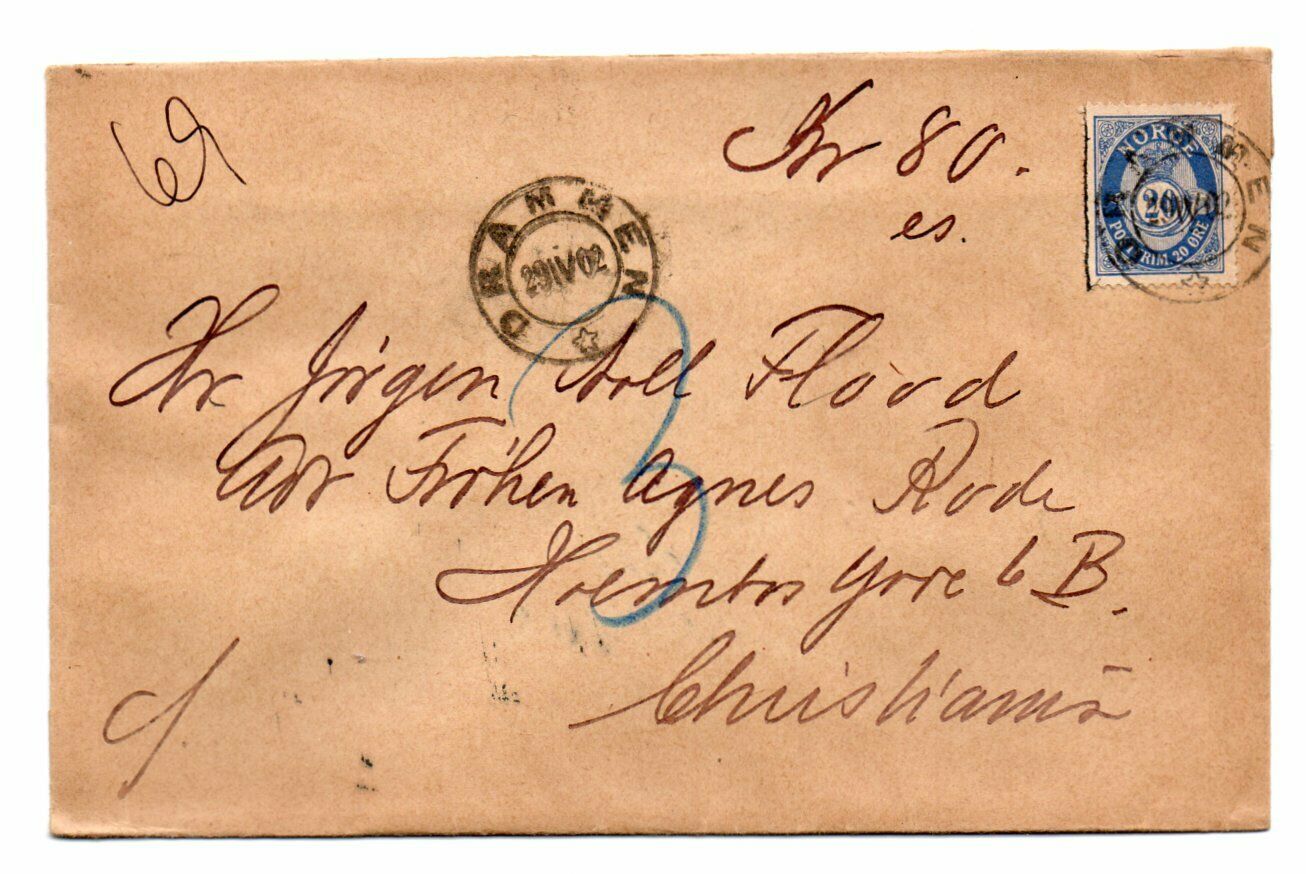 69
Kr 80.
es.
NORGE
20
POSTFRIM. 20 ØRE
DRAMMEN
29 IV 02
DRAMMEN
29 IV 02
Hr. Jörgen Moll Flood
Adr Fröken Agnes Rode
gore 6 B.
Christiania
3